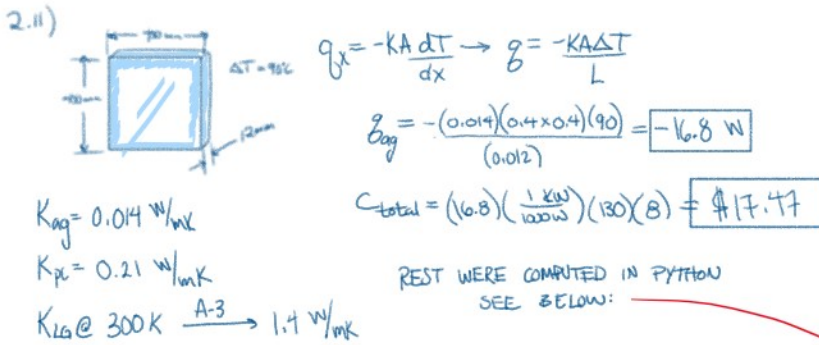 2.11)
ΔT = 90°C
12mm
qx = -KA dT/dx → q = -KAΔT/L
qag = -(0.014)(0.4x0.4)(90)/(0.012) = -16.8 W
Ctotal = (16.8)(1 KW/1000W)(130)(8) = $17.47
Kag = 0.014 W/mK
Kpc = 0.21 W/mK
KLG @ 300K A-3 → 1.4 W/mK
REST WERE COMPUTED IN PYTHON
SEE BELOW: